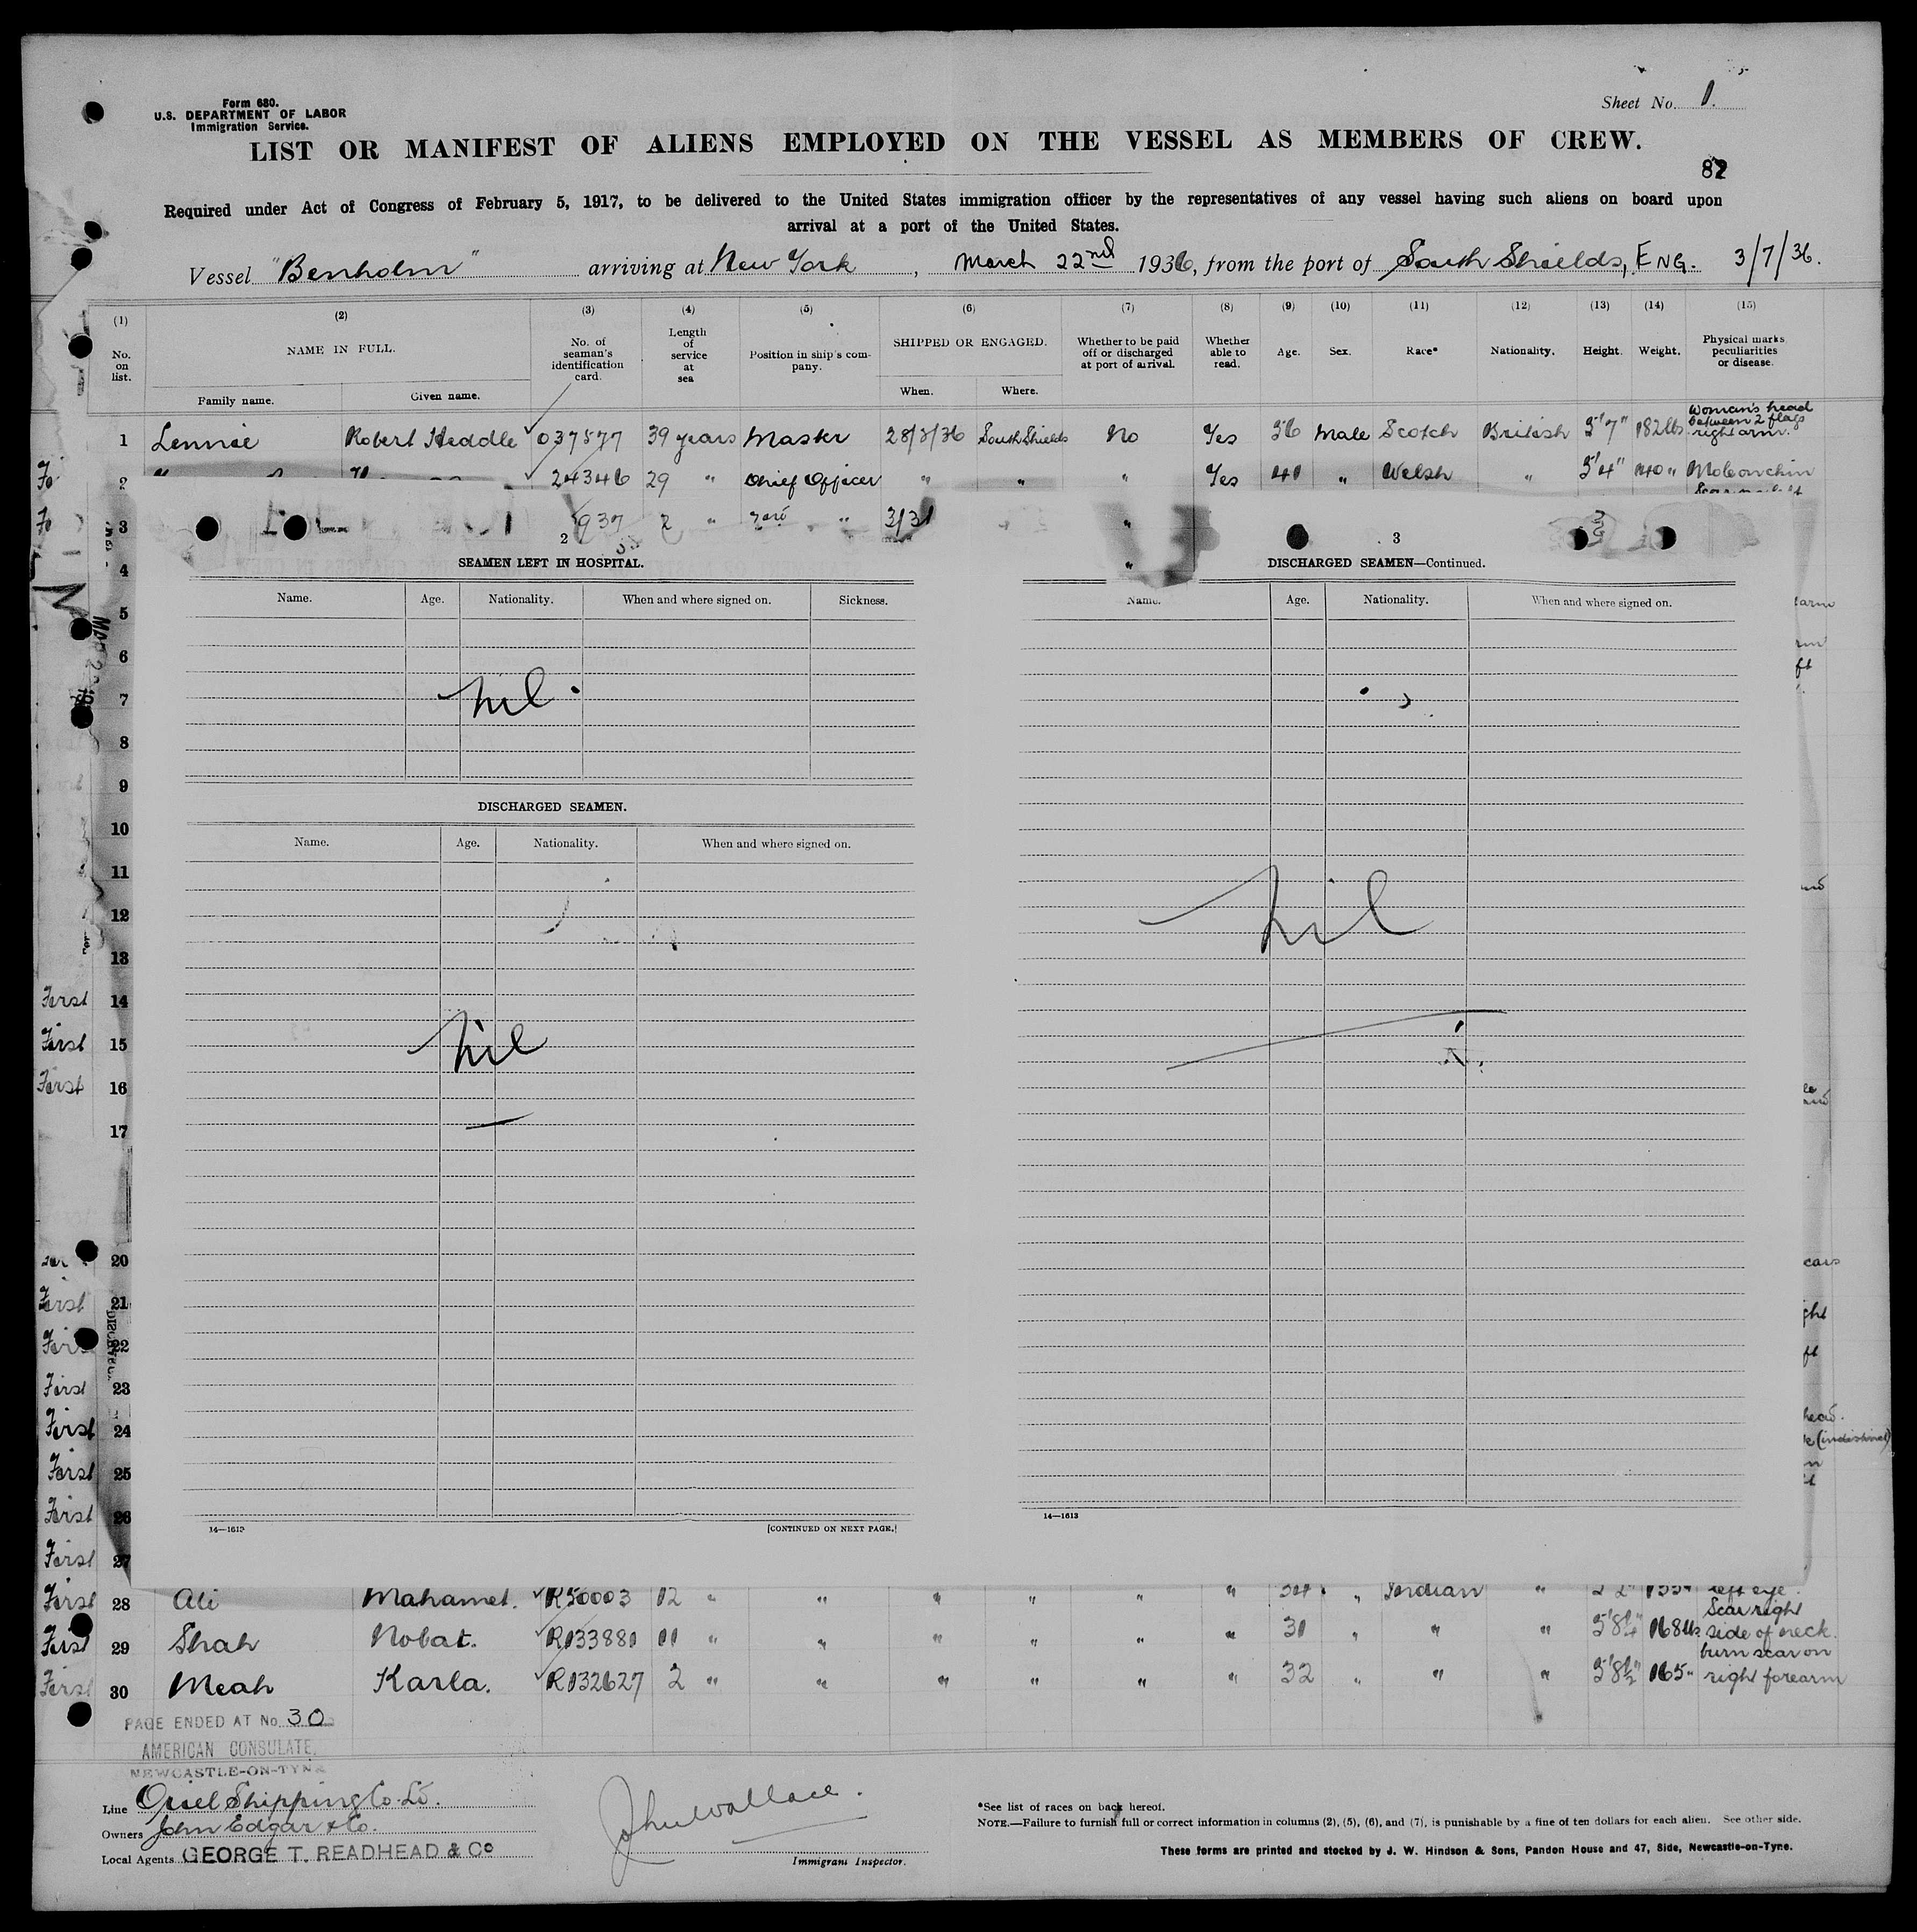 Form 680.
U.S. DEPARTMENT OF LABOR
Immigration Service.
Sheet No. 1.
LIST OR MANIFEST OF ALIENS EMPLOYED ON THE VESSEL AS MEMBERS OF CREW.
82
Required under Act of Congress of February 5, 1917, to be delivered to the United States immigration officer by the representatives of any vessel having such aliens on board upon
arrival at a port of the United States.
Vessel "Benholm" arriving at New York, March 22nd 1936, from the port of South Shields, ENG. 3/7/36.
(1) (2) (3) (4) (5) (6) (7) (8) (9) (10) (11) (12) (13) (14) (15)
No. on list.
NAME IN FULL.
Family name. Given name.
No. of seaman's identification card.
Length of service at sea
Position in ship's company.
SHIPPED OR ENGAGED.
When. Where.
Whether to be paid off or discharged at port of arrival.
Whether able to read.
Age. Sex. Race* Nationality. Height. Weight.
Physical marks, peculiarities or disease.
1 Lennie Robert Heddle 037577 39 years Master 28/2/36 South Shields No Yes 56 Male Scotch British 5'7" 182lbs Woman's head between 2 flags right arm.
2 24346 29 " Chief Officer " " " Yes 40 " Welsh " 5'4" 140 " Mole on chin
3 937 2 " 2nd " "
2
SEAMEN LEFT IN HOSPITAL.
Name. Age. Nationality. When and where signed on. Sickness.
nil
DISCHARGED SEAMEN.
Name. Age. Nationality. When and where signed on.
nil
14—1613
[CONTINUED ON NEXT PAGE.]
3
DISCHARGED SEAMEN—Continued.
Name. Age. Nationality. When and where signed on.
nil
14—1613
4
5
6
7
8
9
10
11
12
13
First 14
First 15
First 16
17
20
First 21
22
First 23
First 24
First 25
First 26
First 27
(indistinct)
First 28 Ali Mahamet. R50003 12 " " " " " " 34 " Indian " left eye.
First 29 Shah Nobat. R133880 11 " " " " " " 30 " " " 168lbs Scar right side of neck.
First 30 Meah Karla. R132627 2 " " " " " " 32 " " " 5'8½" 165 " burn scar on right forearm
PAGE ENDED AT No. 30
AMERICAN CONSULATE,
NEWCASTLE-ON-TYNE
Line Oriel Shipping Co. Ld.
Owners John Edgar & Co.
Local Agents GEORGE T. READHEAD & Co
John Wallace.
Immigrant Inspector.
*See list of races on back hereof.
NOTE.—Failure to furnish full or correct information in columns (2), (5), (6), and (7), is punishable by a fine of ten dollars for each alien. See other side.
These forms are printed and stocked by J. W. Hindson & Sons, Pandon House and 47, Side, Newcastle-on-Tyne.